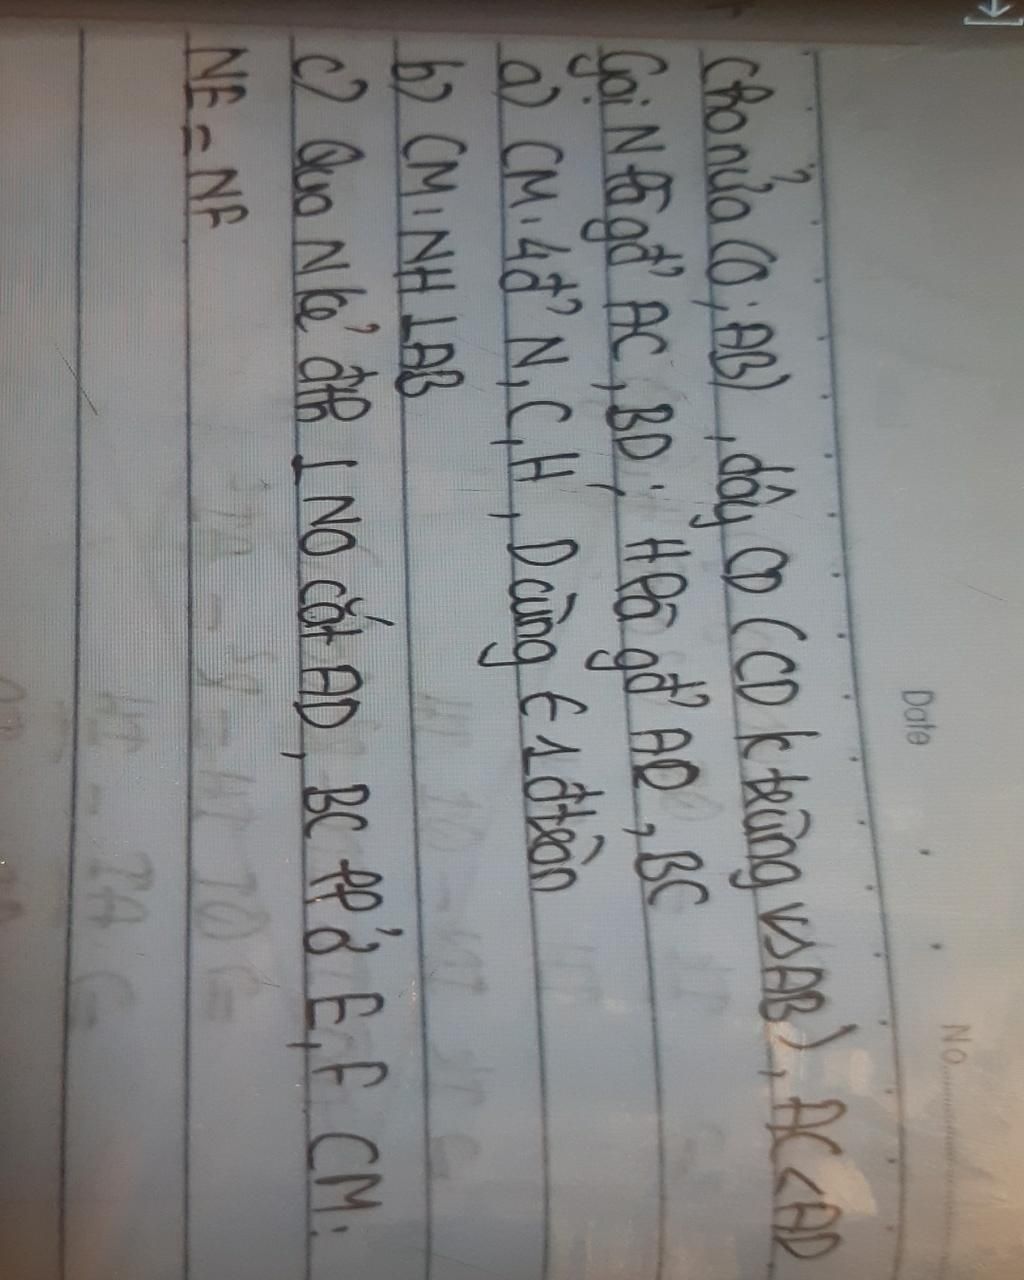 Date
No.
Cho nửa (O; AB), dây CD (CD k trùng vs AB), AC < AD
Gọi N là gđ' AC, BD; H là gđ' AD, BC
a) CM: 4đ' N, C, H, D cùng ∈ 1 đtròn
b) CM: NH ⊥ AB
c) Qua N kẻ đth ⊥ NO cắt AD, BC tại E, F CM:
NE = NF